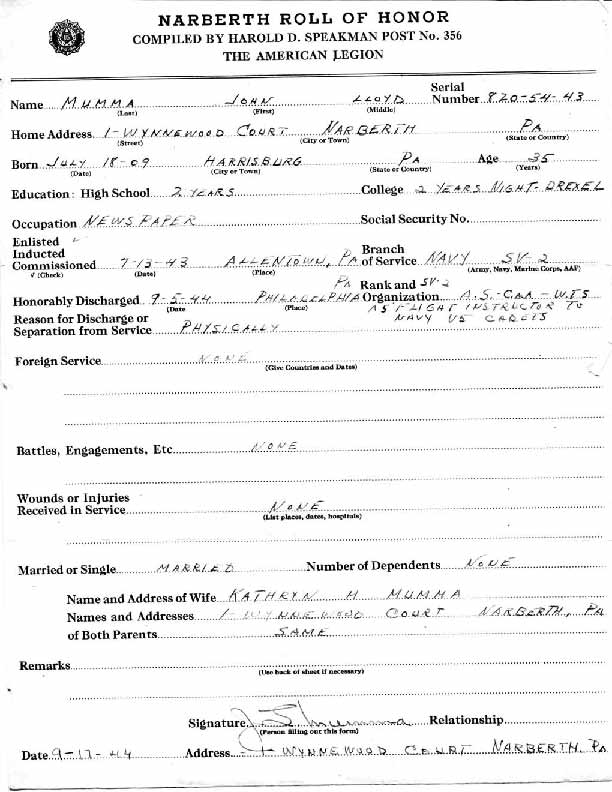 NARBERTH ROLL OF HONOR
COMPILED BY HAROLD D. SPEAKMAN POST No. 356
THE AMERICAN LEGION
Name MUMMA JOHN LLOYD Serial Number 820-54-43
(Last) (First) (Middle)
Home Address 1-WYNNEWOOD COURT NARBERTH PA
(Street) (City or Town) (State or Country)
Born JULY 18-09 HARRISBURG PA Age 35
(Date) (City or Town) (State or Country) (Years)
Education: High School 2 YEARS College 2 YEARS NIGHT-DREXEL
Occupation NEWSPAPER Social Security No.
Enlisted
Inducted
Commissioned 7-13-43 ALLENTOWN, PA Branch of Service NAVY SV-2
√ (Check) (Date) (Place) (Army, Navy, Marine Corps, AAF)
Honorably Discharged 9-5-44 PHILADELPHIA PA Rank and Organization SV-2 A.S.-CAA-WTS
(Date (Place) AS FLIGHT INSTRUCTOR TO
Reason for Discharge or NAVY V5 CADETS
Separation from Service PHYSICALLY
Foreign Service NONE
(Give Countries and Dates)
Battles, Engagements, Etc. NONE
Wounds or Injuries
Received in Service NONE
(List places, dates, hospitals)
Married or Single MARRIED Number of Dependents NONE
Name and Address of Wife KATHRYN H MUMMA
Names and Addresses 1-WYNNEWOOD COURT NARBERTH, PA
of Both Parents SAME
Remarks
(Use back of sheet if necessary)
Signature J L Mumma Relationship
(Person filling out this form)
Date 9-17-44 Address 1 WYNNEWOOD COURT NARBERTH, PA